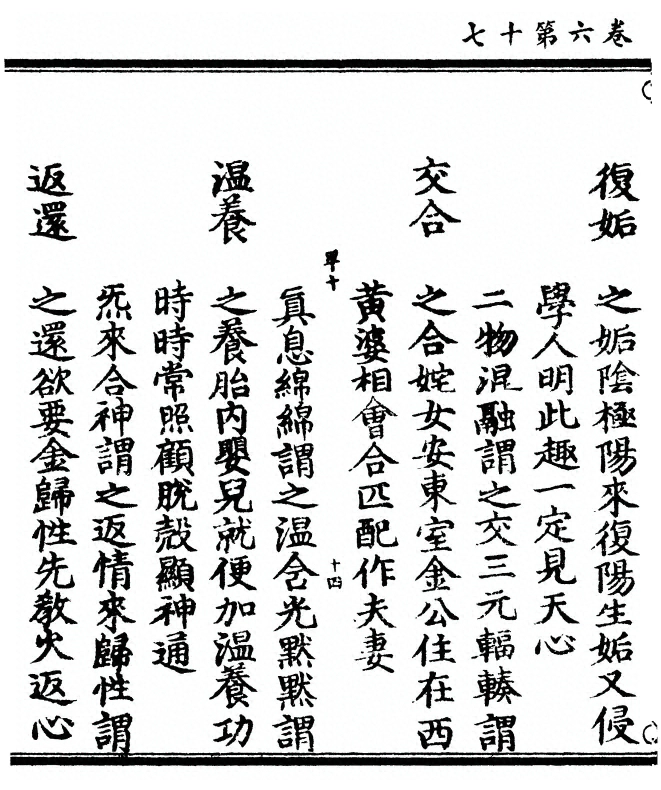 卷六第十七
復姤
之姤陰極陽來復陽生姤又侵
學人明此趣一定見天心
交合
二物混融謂之交三元輻輳謂
之合姹女安東室金公住在西
黃婆相會合匹配作夫妻
單十
十四
溫養
眞息綿綿謂之溫含光默默謂
之養胎內嬰兒就便加溫養功
時時常照顧脫殼顯神通
返還
炁來合神謂之返情來歸性謂
之還欲要金歸性先教火返心